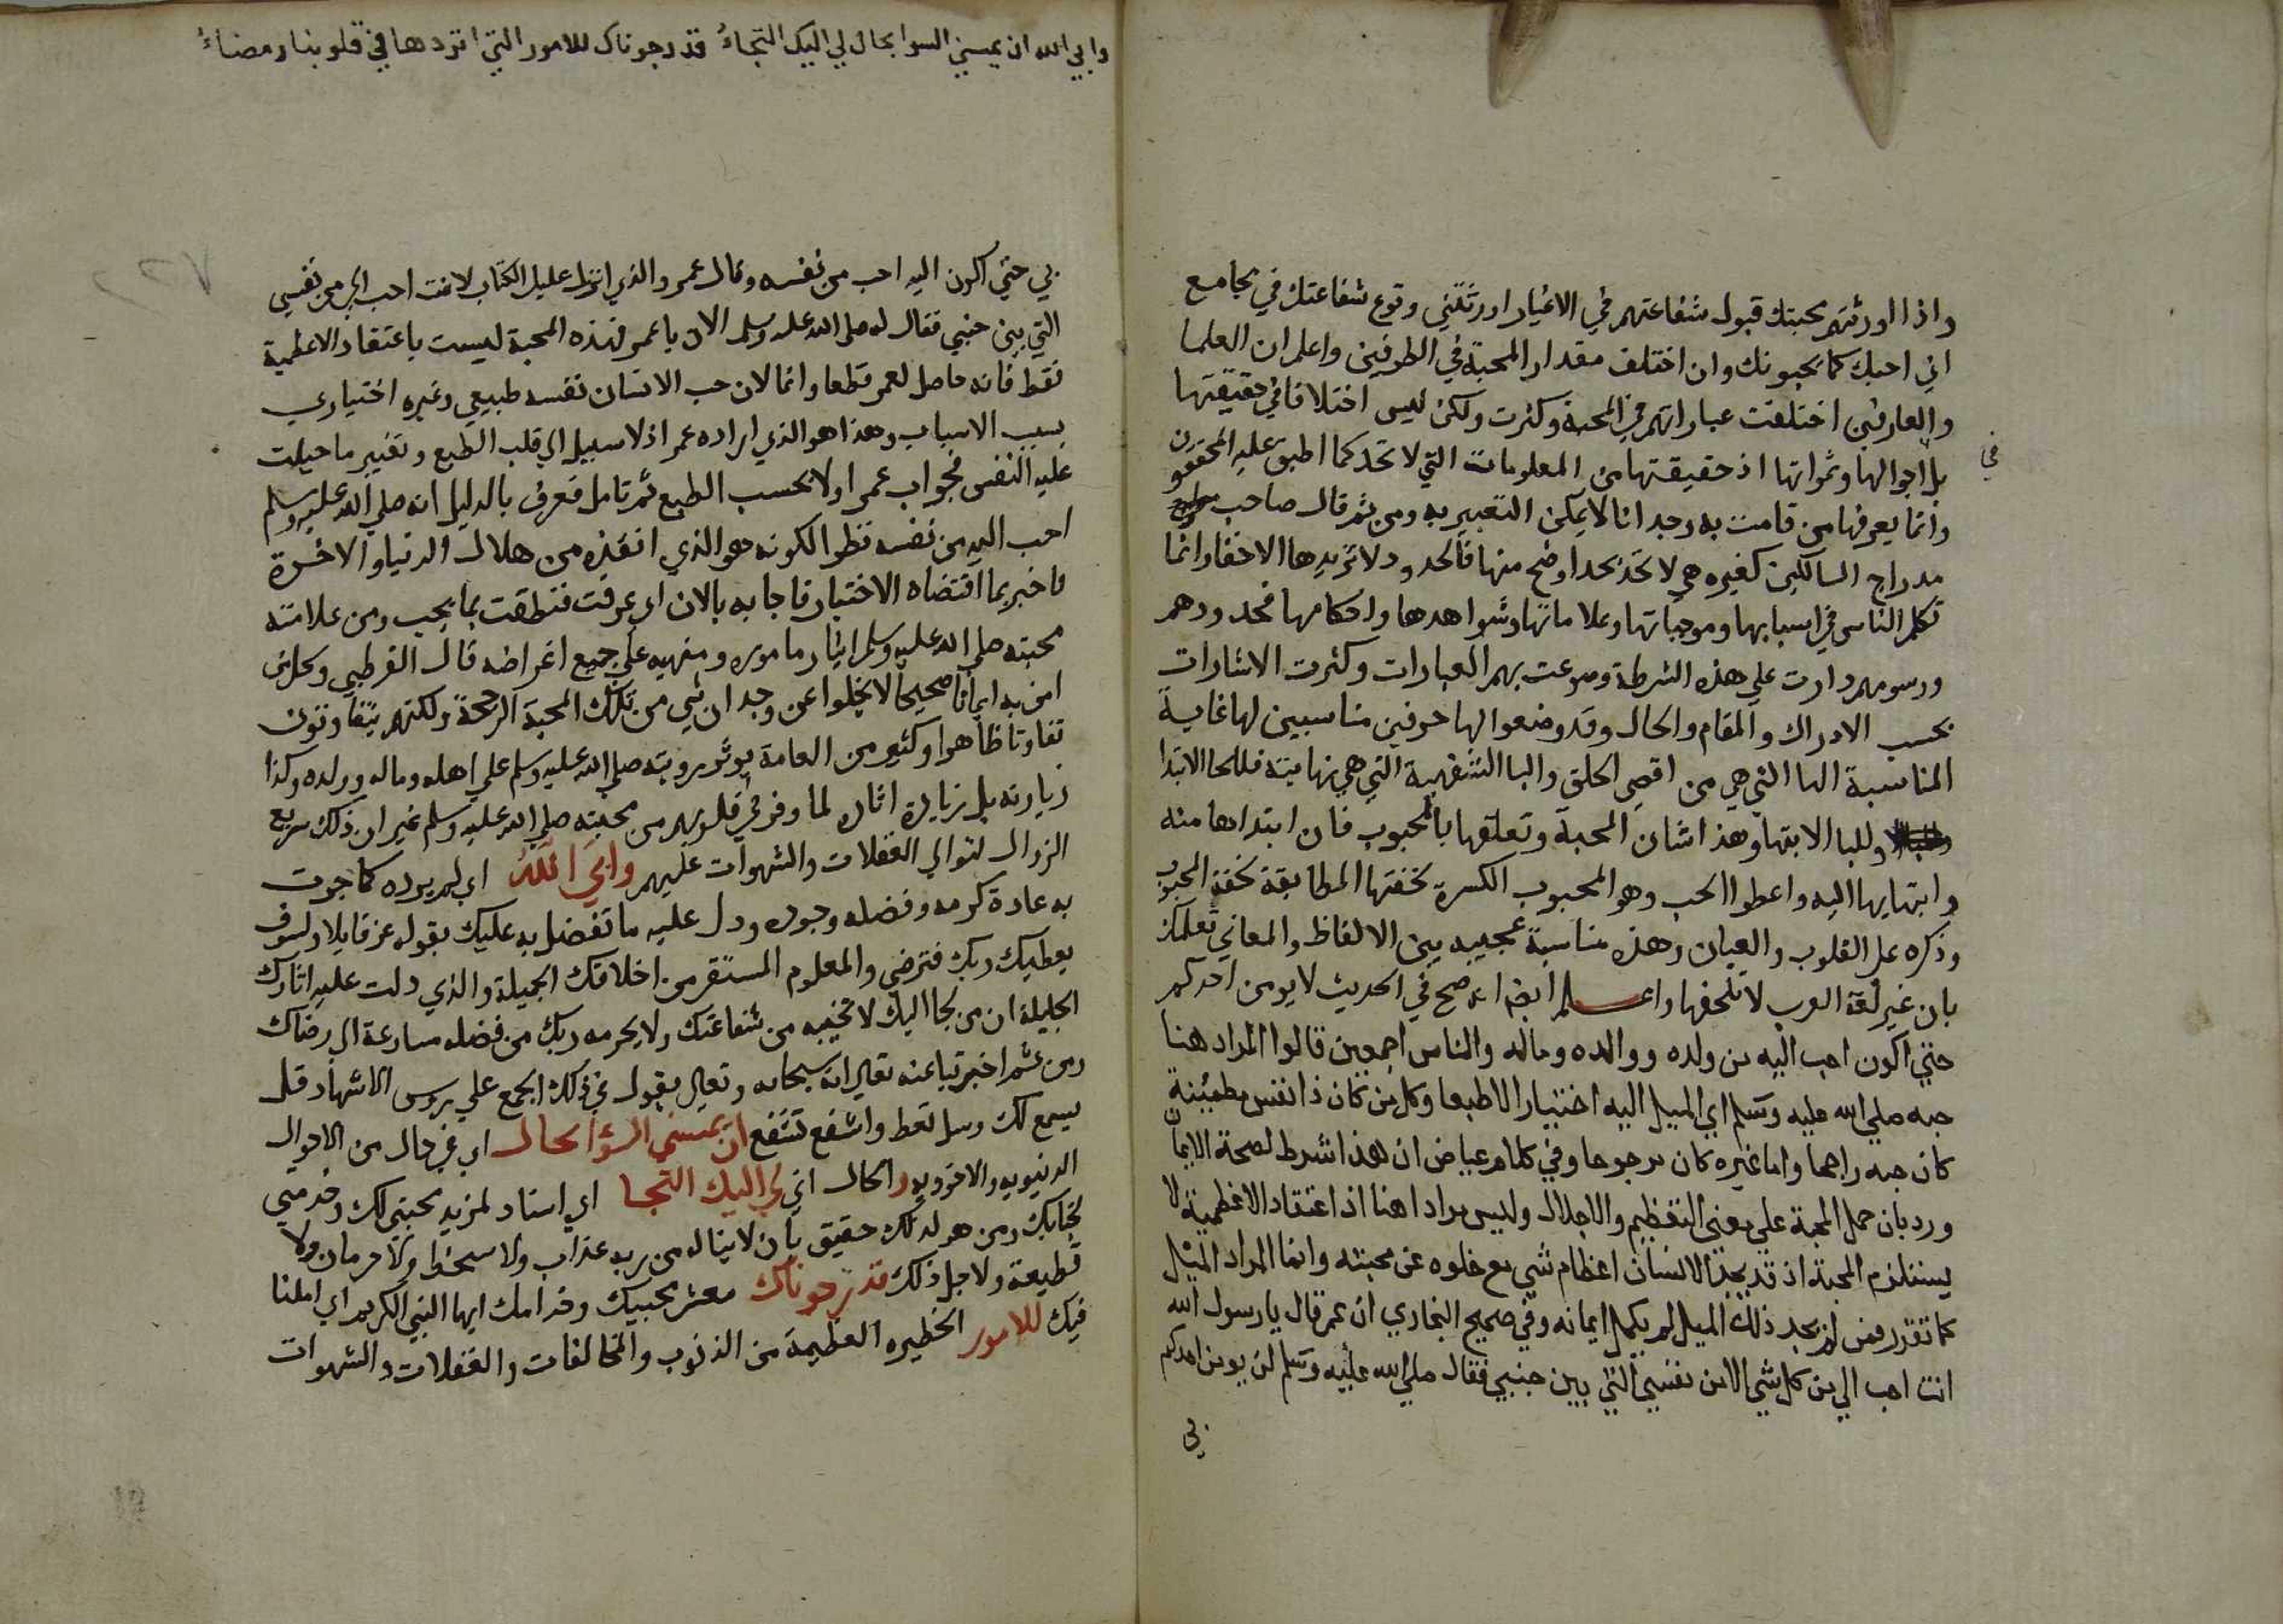 واذا اورثتهم محبتك قبول شفاعتهم في الاغيار اورثتني وقوع شفاعتك في مجامع
اني احبك كما يحبونك وان اختلف مقدار المحبة في الطرفين واعلم ان العلما
والعارفين اختلفت عباراتهم في المحبة وكثرت ولكن ليس اختلافا في حقيقتها
بل احوالها وثمراتها اذ حقيقتها من المعلومات التي لا تحد كما اطبق عليه المحققون
في
وانما يعرفها من قامت به وجدانا لا يمكن التعبير به ومن ثم قال صاحب
مدراج السالكين كغيره هي لا تحد بحد اوضح منها فالحدود لا تزيدها الا خفا وانما
تكلم الناس في اسبابها وموجباتها وعلاماتها وشواهدها واحكامها فحدودهم
ورسومهم دارت علي هذه الشرطة وسرعت بهم العبارات وكثرت الاشارات
بحسب الادراك والمقام والحال وقد وضعوا لها حرفين مناسبين لها غاية
المناسبة الحا التي هي من اقصي الحلق والبا الشفهية التي هي نهايته فللحا الابتدا
وللبا الانتها وهذا شان المحبة وتعلقها بالمحبوب فان ابتداها منه
وانتهايها اليه واعطوا الحب وهو المحبوب الكسرة لخفتها المطابقة لخفة المحبوب
وذكره على القلوب والعيان وهذه مناسبة عجيبه بين الالفاظ والمعاني تعلمك
بان غير لغة العرب لا تلحقها واعلم ايضا انه صح في الحديث لا يومن احدكم
حتي اكون احب اليه من ولده ووالده وماله والناس اجمعين قالوا المراد هنا
حبه صلي الله عليه وسلم اي الميل اليه اختيارا لا طبعا وكل من كان ذا نفس مطمئنة
كان حبه راجحا واما غيره كان مرجوحا وفي كلام عياض ان هذا شرط لصحة الايمان
ورد بان حمل المحبة علي معني التعظيم والاجلال وليس مرادا هنا اذ اعتقاد الاعظمية لا
يستلزم المحبة اذ قد يجد الانسان اعظام شي مع خلوه عن محبته وانما المراد الميل
كما تقرر فمن لم يجد ذلك الميل لم يكمل ايمانه وفي صحيح البخاري ان عمر قال يا رسول الله
انت احب الي من كل شي الا من نفسي التي بين جنبي فقال صلي الله عليه وسلم لن يومن احدكم
بي
وابي الله ان يمسني السوا بحال لي اليك التجاءُ قد رجوناك للامور التي ابردها في قلوبنا رمضاءُ
٢٢٧
بي حتي اكون اليه احب من نفسه وقال عمر والذي انزل عليك الكتاب لانت احب الي من نفسي
التي بين جنبي فقال له صلى الله عليه وسلم الان يا عمر فهذه المحبة ليست باعتقاد الاعظمية
فقط فانه حاصل لعمر قطعا وانما لان حب الانسان نفسه طبيعي وغيره اختياري
بسبب الاسباب وهذا هو الذي اراده عمر اذ لا سبيل الي قلب الطبع وتغيير ما جبلت
عليه النفس فجواب عمر اولا بحسب الطبع ثم تامل فعرف بالدليل انه صلي الله عليه وسلم
احب اليه من نفسه نظرا لكونه هو الذي انقذه من هلاك الدنيا والاخرة
فاخبر بما اقتضاه الاختيار فاجابه بالان اي عرفت فنطقت بما يجب ومن علامته
محبته صلي الله عليه وسلم ايثار ماموره ومنهيه علي جميع اغراضه قال القرطبي وكل من
امن به ايمانا صحيحا لا يخلوا عن وجدان شي من تلك المحبة الرجحة ولكنهم يتفاوتون
تفاوتا ظاهرا وكثير من العامة يوثر رويته صلي الله عليه وسلم علي اهله وماله وولده وكذا
زيارته بل زيارة اثاره لما وفر في قلوبهم من محبته صلي الله عليه وسلم غير ان ذلك سريع
الزوال لتوالي الغفلات والشهوات عليهم وابي الله اي لم يرده كما جرت
به عادة كرمه وفضله وجوده ودل عليه ما تفضل به عليك بقوله عز قايلا ولسوف
يعطيك ربك فترضي والمعلوم المستقر من اخلاقك الجميلة والذي دلت عليه اثارك
الجليلة ان من لجا اليك لا تخيبه من شفاعتك ولا يحرمه ربك من فضله مسارعة الي رضاك
ومن ثم اخبرتنا عنه تعالى انه سبحانه وتعالى يقول في ذلك الجمع علي روس الاشهاد قل
يسمع لك وسل تعط واشفع تشفع ان يمسني السؤا بحال اي في حال من الاحوال
الدنيويه والاخرويه والحال اني لي اليك التجا اي استناد لمزيد محبتي لك وخدمتي
لجنابك ومن هو لذلك حقيق بان لا يناله من ربه عذاب ولا سخط ولا حرمان ولا
قطيعة ولاجل ذلك قد رجوناك معشر محبيك وخدامك ايها النبي الكريم اي املنا
فيك للامور الخطيره العظيمة من الذنوب والمخالفات والغفلات والشهوات